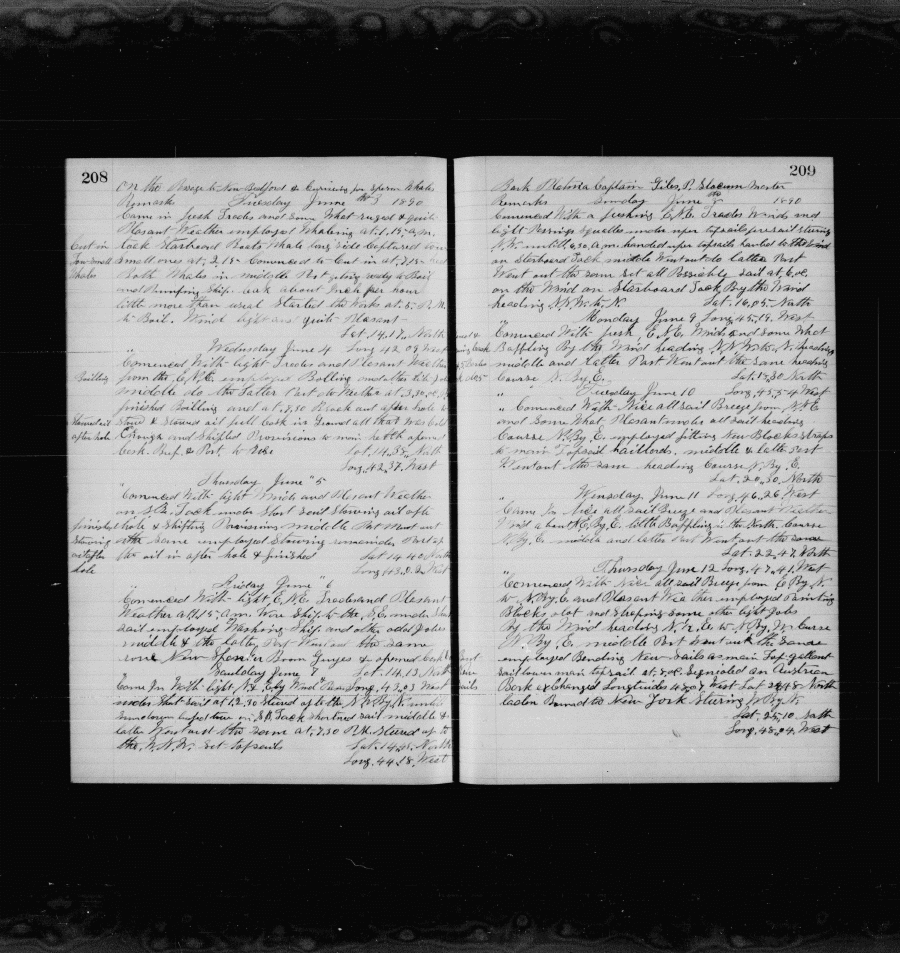 208
On the Passage to New Bedford & Cruising for Sperm Whales
Remarks Tuesday June the 3 1890
Came in fresh Trades and Som What ruged & quite
Plesant Weather employed Whaleing at 1.15 a.m.
Cut in
Two Small
Whales
lack Starboard Boats Whale long side Captured
small ones at 2.15 Comenced to Cut in at
Both Whales in middle Part geting ready to Boil
and Pumping Ship. leak about Inch per hour
little more than usual Started the Works at 5 P.M.
to Boil. Wind light and quite Plesant
Lat. 14.17 North
" Wednesday June 4 Long 42.09 West
Comenced With light Trades and Plesant Weather
Boilling
from the E.N.E. employed Boiling
middle do the Latter Part do Weather at 3.30
finished Boilling and at 7.30 Broak out after hole to
Stowed oil
after hole
Stow & Stowed oil full Cask in Ground all that Was Cold
Enough and Shifted Provisions to main hatch opened
Cask. Beef & Port. to Use Lat. 14.35 North
Long. 42.37. West
Thursday June " 5
" Comenced With light Winds and Plesant Weather
on S.B. Tack under Short Sail Stowing oil after
finished
Stowing
oil after
hole
hole & Shifting Provisions middle Part Went out
the Same employed Stowing remainder Part of
the oil in after hole & finished Lat 14.40 North
Long 43.02 West
Friday June " 6
" Comenced With light E.N.E. Trades and Plesant
Weather at 1.15 a.m. Wore Ship to the N.E. under Short
sail employed Washing Ship. and other odd Jobes
middle & the latter Part Went out the Same
New Spanker Boom Guyes & opened Cask
Saturday June 7 Lat. 14.13 North
Came In With light N.E. By Wind Long. 43.03 West
under Short sail at 12.30 Stered of to the N.W. By N. under
Sundown luffed too on S.B. Tack shortned sail middle &
latter Went out the Same at 7.30 P.M. Stered up to
the N.N.W. Set topsails Lat. 14.51 North
Long. 44.18. West
209
Bark Platina Captain Giles P. Slocum Master
Remarks Sunday June 8 1890
Comenced With a freshing E.N.E. Trades Winds and
light Passing Squalls under uper topsails foresail stering
N.W. until 6.30 a.m. handed uper topsails hauled to the Wind
on Starboard Tack middle Went out do latter Part
Went out the Same Set all Possiable sail at 6.oc.
on the Wind on Starboard Tack By the Wind
heading N.N.W. to N. Lat. 16.05 North
" Monday June 9 Long 45.19. West
Comenced With fresh E.N.E. Winds and Some What
Baffling By the Wind heading N.N.W. to N. heading
middle and latter Part Went out the Same heading
Course N. By E. Lat. 18.30 North
" Tuesday June 10 Long, 45.54 West
" Comenced With Nice all sail Breeze from N.N.E
and Some What Plesant under all sail heading
Course N. By E. employed fitting New Blocks Straps
to main Topsail haillords. middle & latter Part
Went out the Same heading Course N. By E.
Lat. 20.30. North
" Winsday, June 11 Long. 46.26 West
Came In Nice all sail Breeze and Plesant Weather
Wind a bout N.E. By E. little Baffling to the North. Course
N. By E. middle and latter Part Went out the Same
Lat. 22.47. North
" Thursday June 12 Long. 47.41. West
Comenced With Nice all sail Breeze from E. By N.
to N. By. E. and Plesant Weather employed Painting
Blocks alot and Sheping Some other light Jobs
By the Wind heading N.N.E. to N. By W. Curse
N. By E. middle Part Went out the Same
employed Bending New Sails as main Top gallant
sail lower main topsail at 5.oc. Signaled an Austrian
Bark exChanged Longitudes 48.07 West Lat 24.48 North
Laden Bound to New York Stering W. By N.
Lat. 25.10 North
Long. 48.04. West